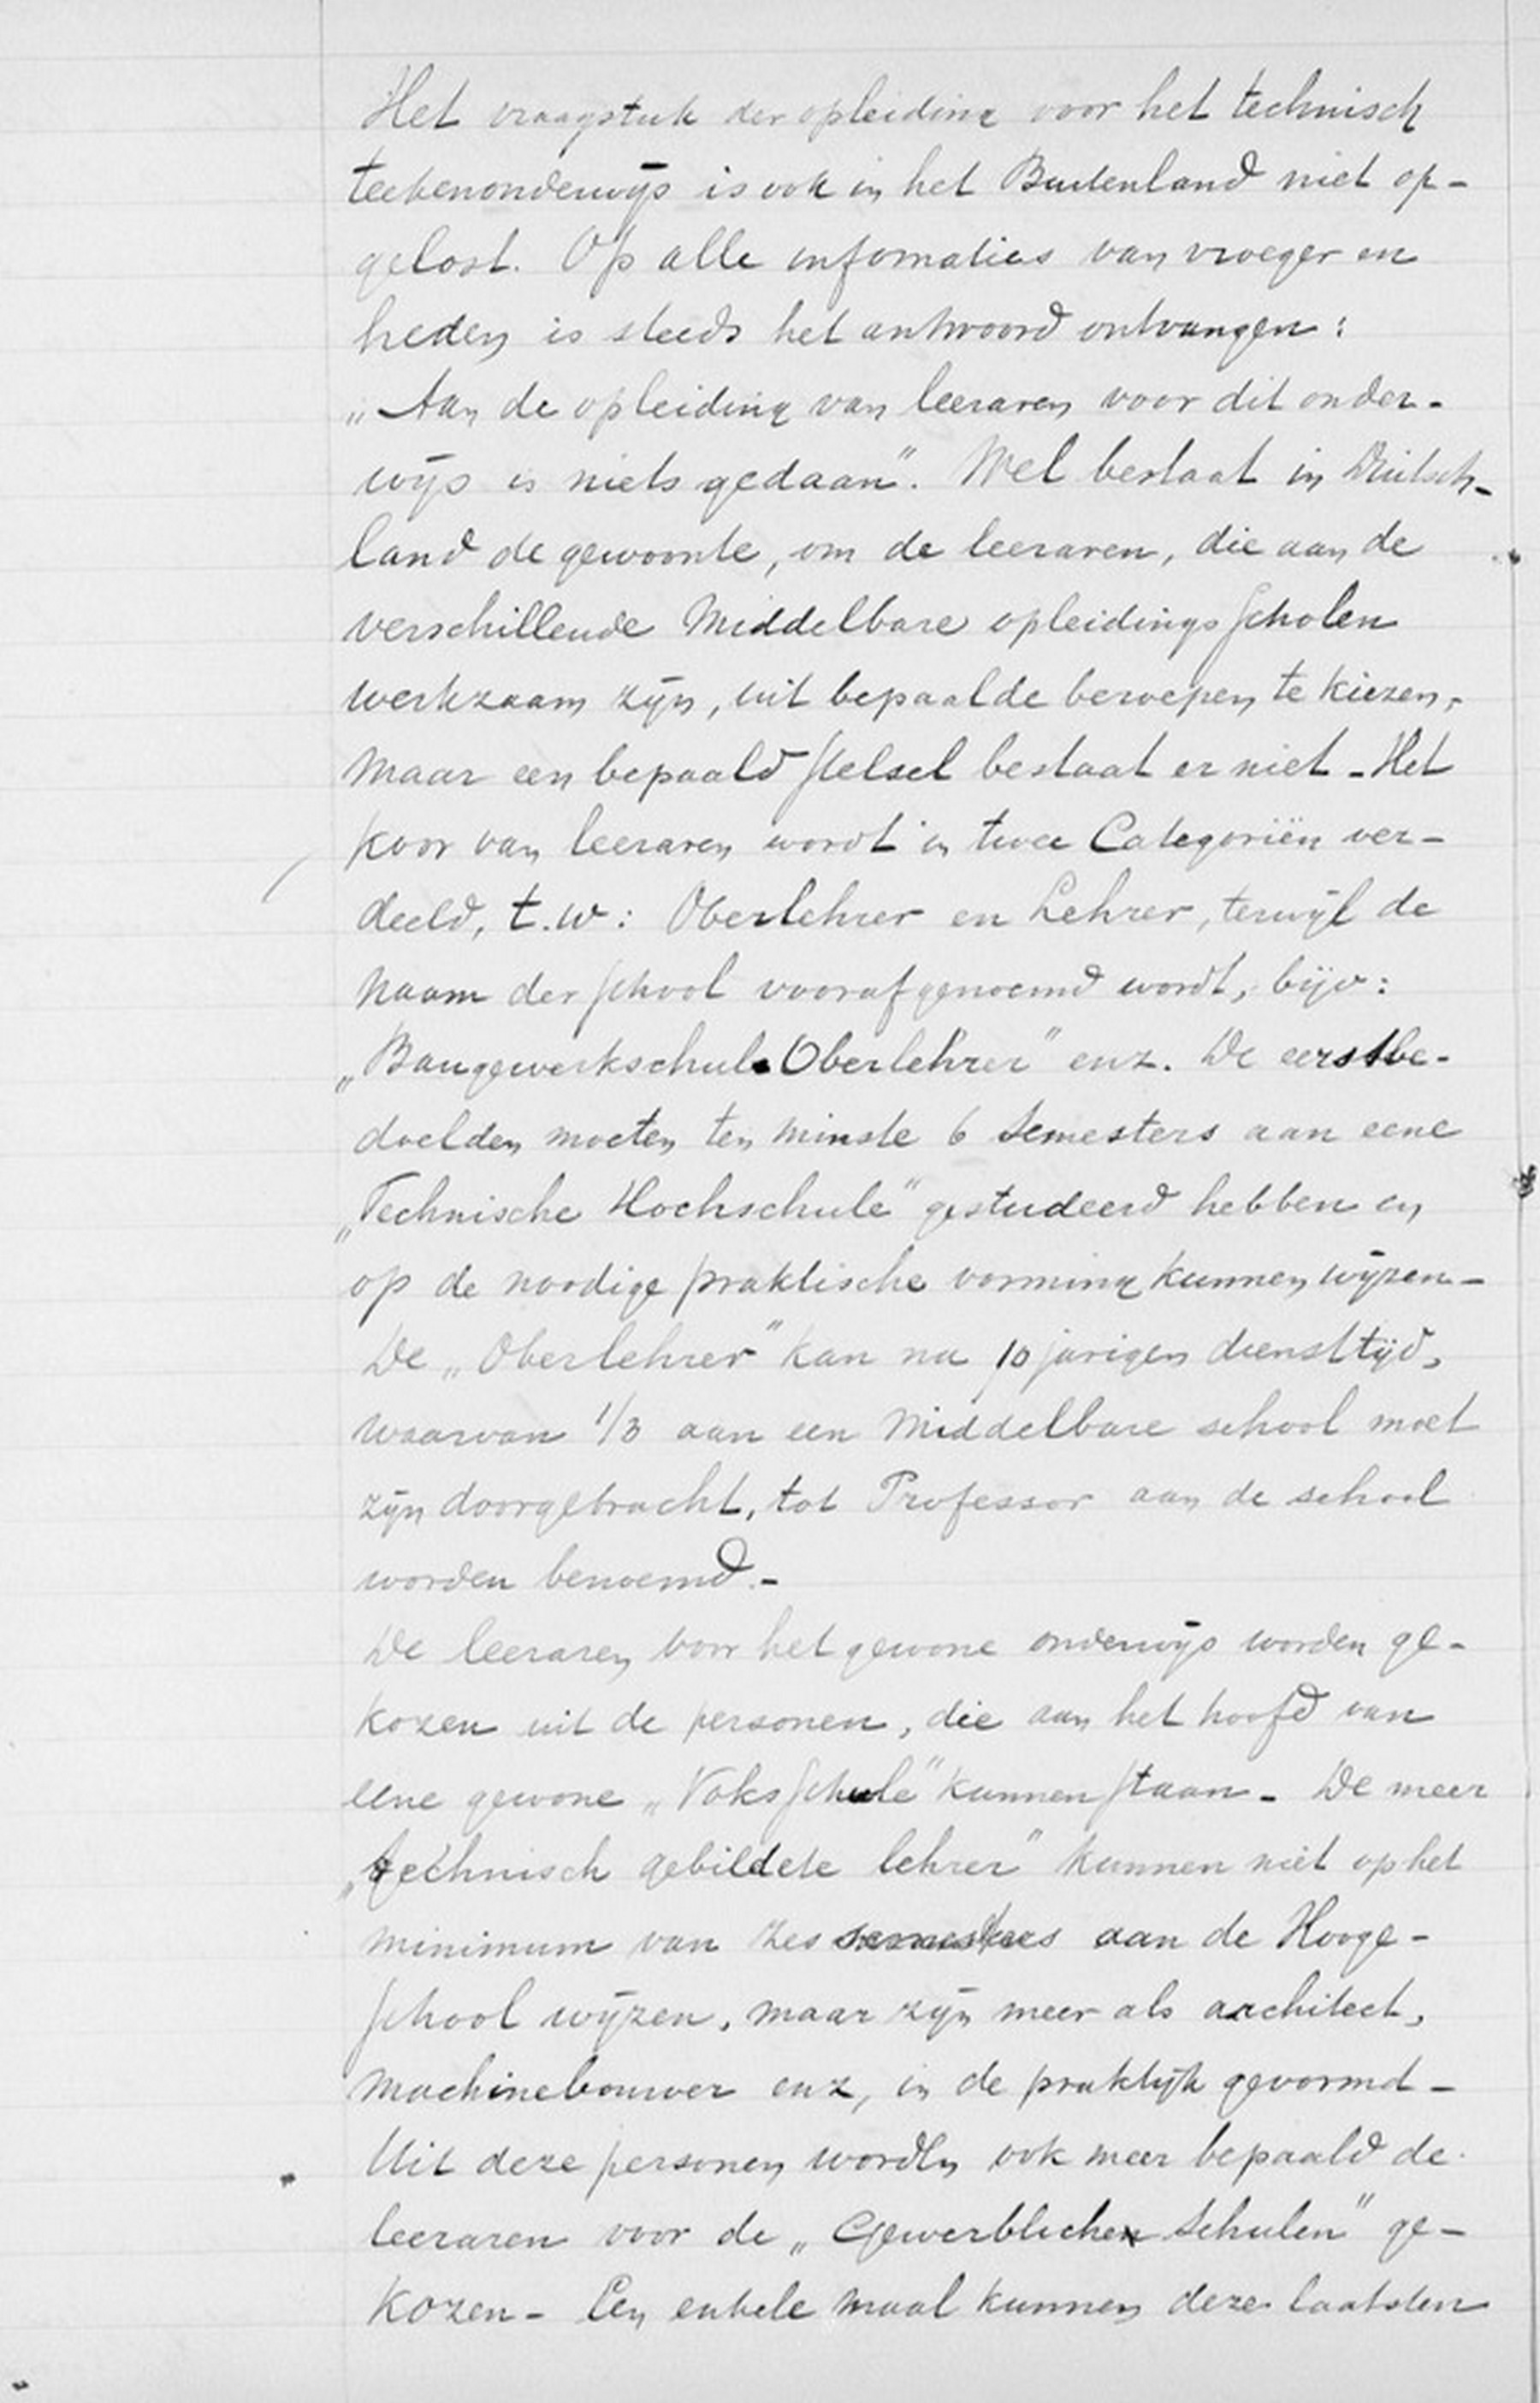 Het vraagstuk der opleiding voor het technisch
teekenonderwijs is ook in het Buitenland niet op-
gelost. Op alle informaties van vroeger en
heden is steeds het antwoord ontvangen:
„Aan de opleiding van leeraren voor dit onder-
wijs is niets gedaan". Wel bestaat in Duitsch-
land de gewoonte, om de leeraren, die aan de
verschillende Middelbare opleidingsscholen
werkzaam zijn, uit bepaalde beroepen te kiezen,
maar een bepaald stelsel bestaat er niet - Het
koor van leeraren wordt in twee Categoriën ver-
deeld, t.w: Oberlehrer en Lehrer, terwijl de
naam der school voorafgenoemd wordt, bijv:
„Baugewerkschul-Oberlehrer" enz. De eerstbe-
doelden moeten ten minste 6 Semesters aan eene
„Technische Hochschule" gestudeerd hebben en
op de noodige praktische vorming kunnen wijzen -
De „Oberlehrer" kan na 10 jarigen diensttijd,
waarvan 1/3 aan een Middelbare school moet
zijn doorgebracht, tot Professor aan de school
worden benoemd. -
De leeraren voor het gewone onderwijs worden ge-
kozen uit de personen, die aan het hoofd van
eene gewone „Voksschule" kunnen staan - De meer
„technisch gebildete lehrer" kunnen niet op het
minimum van zes semesters aan de Hooge-
school wijzen, maar zijn meer als architect,
machinebouwer enz, in de praktijk gevormd -
Uit deze personen worden ook meer bepaald de
leeraren voor de „Gewerblichen Schulen" ge-
kozen - Een enkele maal kunnen deze laatsten